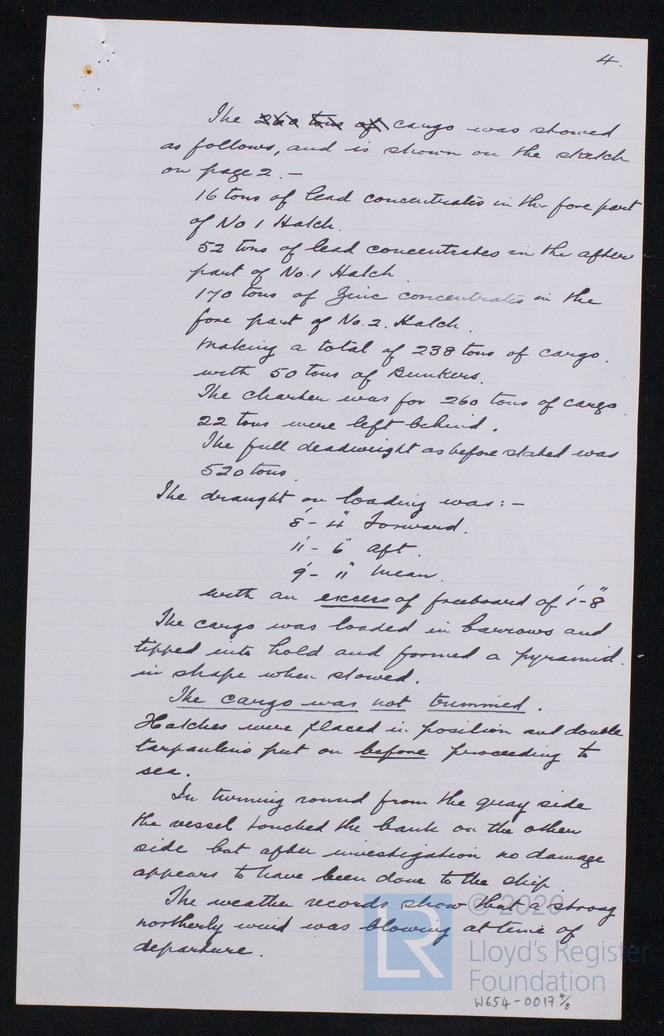 4.
The 260 tons of cargo was stowed
as follows, and is shown on the sketch
on page 2. —
16 tons of lead concentrates in the fore part
of No 1 Hatch.
52 tons of lead concentrates in the after
part of No. 1 Hatch.
170 tons of Zinc concentrates in the
fore part of No. 2. Hatch.
Making a total of 238 tons of cargo.
with 50 tons of Bunkers.
The charter was for 260 tons of cargo
22 tons were left behind.
The full deadweight as before stated was
520 tons.
The draught on loading was: —
8' - 4" Forward.
11' - 6" Aft.
9' - 11" Mean.
with an excess of freeboard of 1'-8"
The cargo was loaded in barrows and
tipped into hold and formed a pyramid.
in shape when stowed.
The cargo was not trimmed.
Hatches were placed in position and double
tarpaulins put on before proceeding to
sea.
In turning round from the quay side
the vessel touched the bank on the other
side but after investigation no damage
appears to have been done to the ship.
The weather records show that a strong
northerly wind was blowing at time of
departure.
© 2020
LR
Lloyd's Register
Foundation
W654-0017 4/8